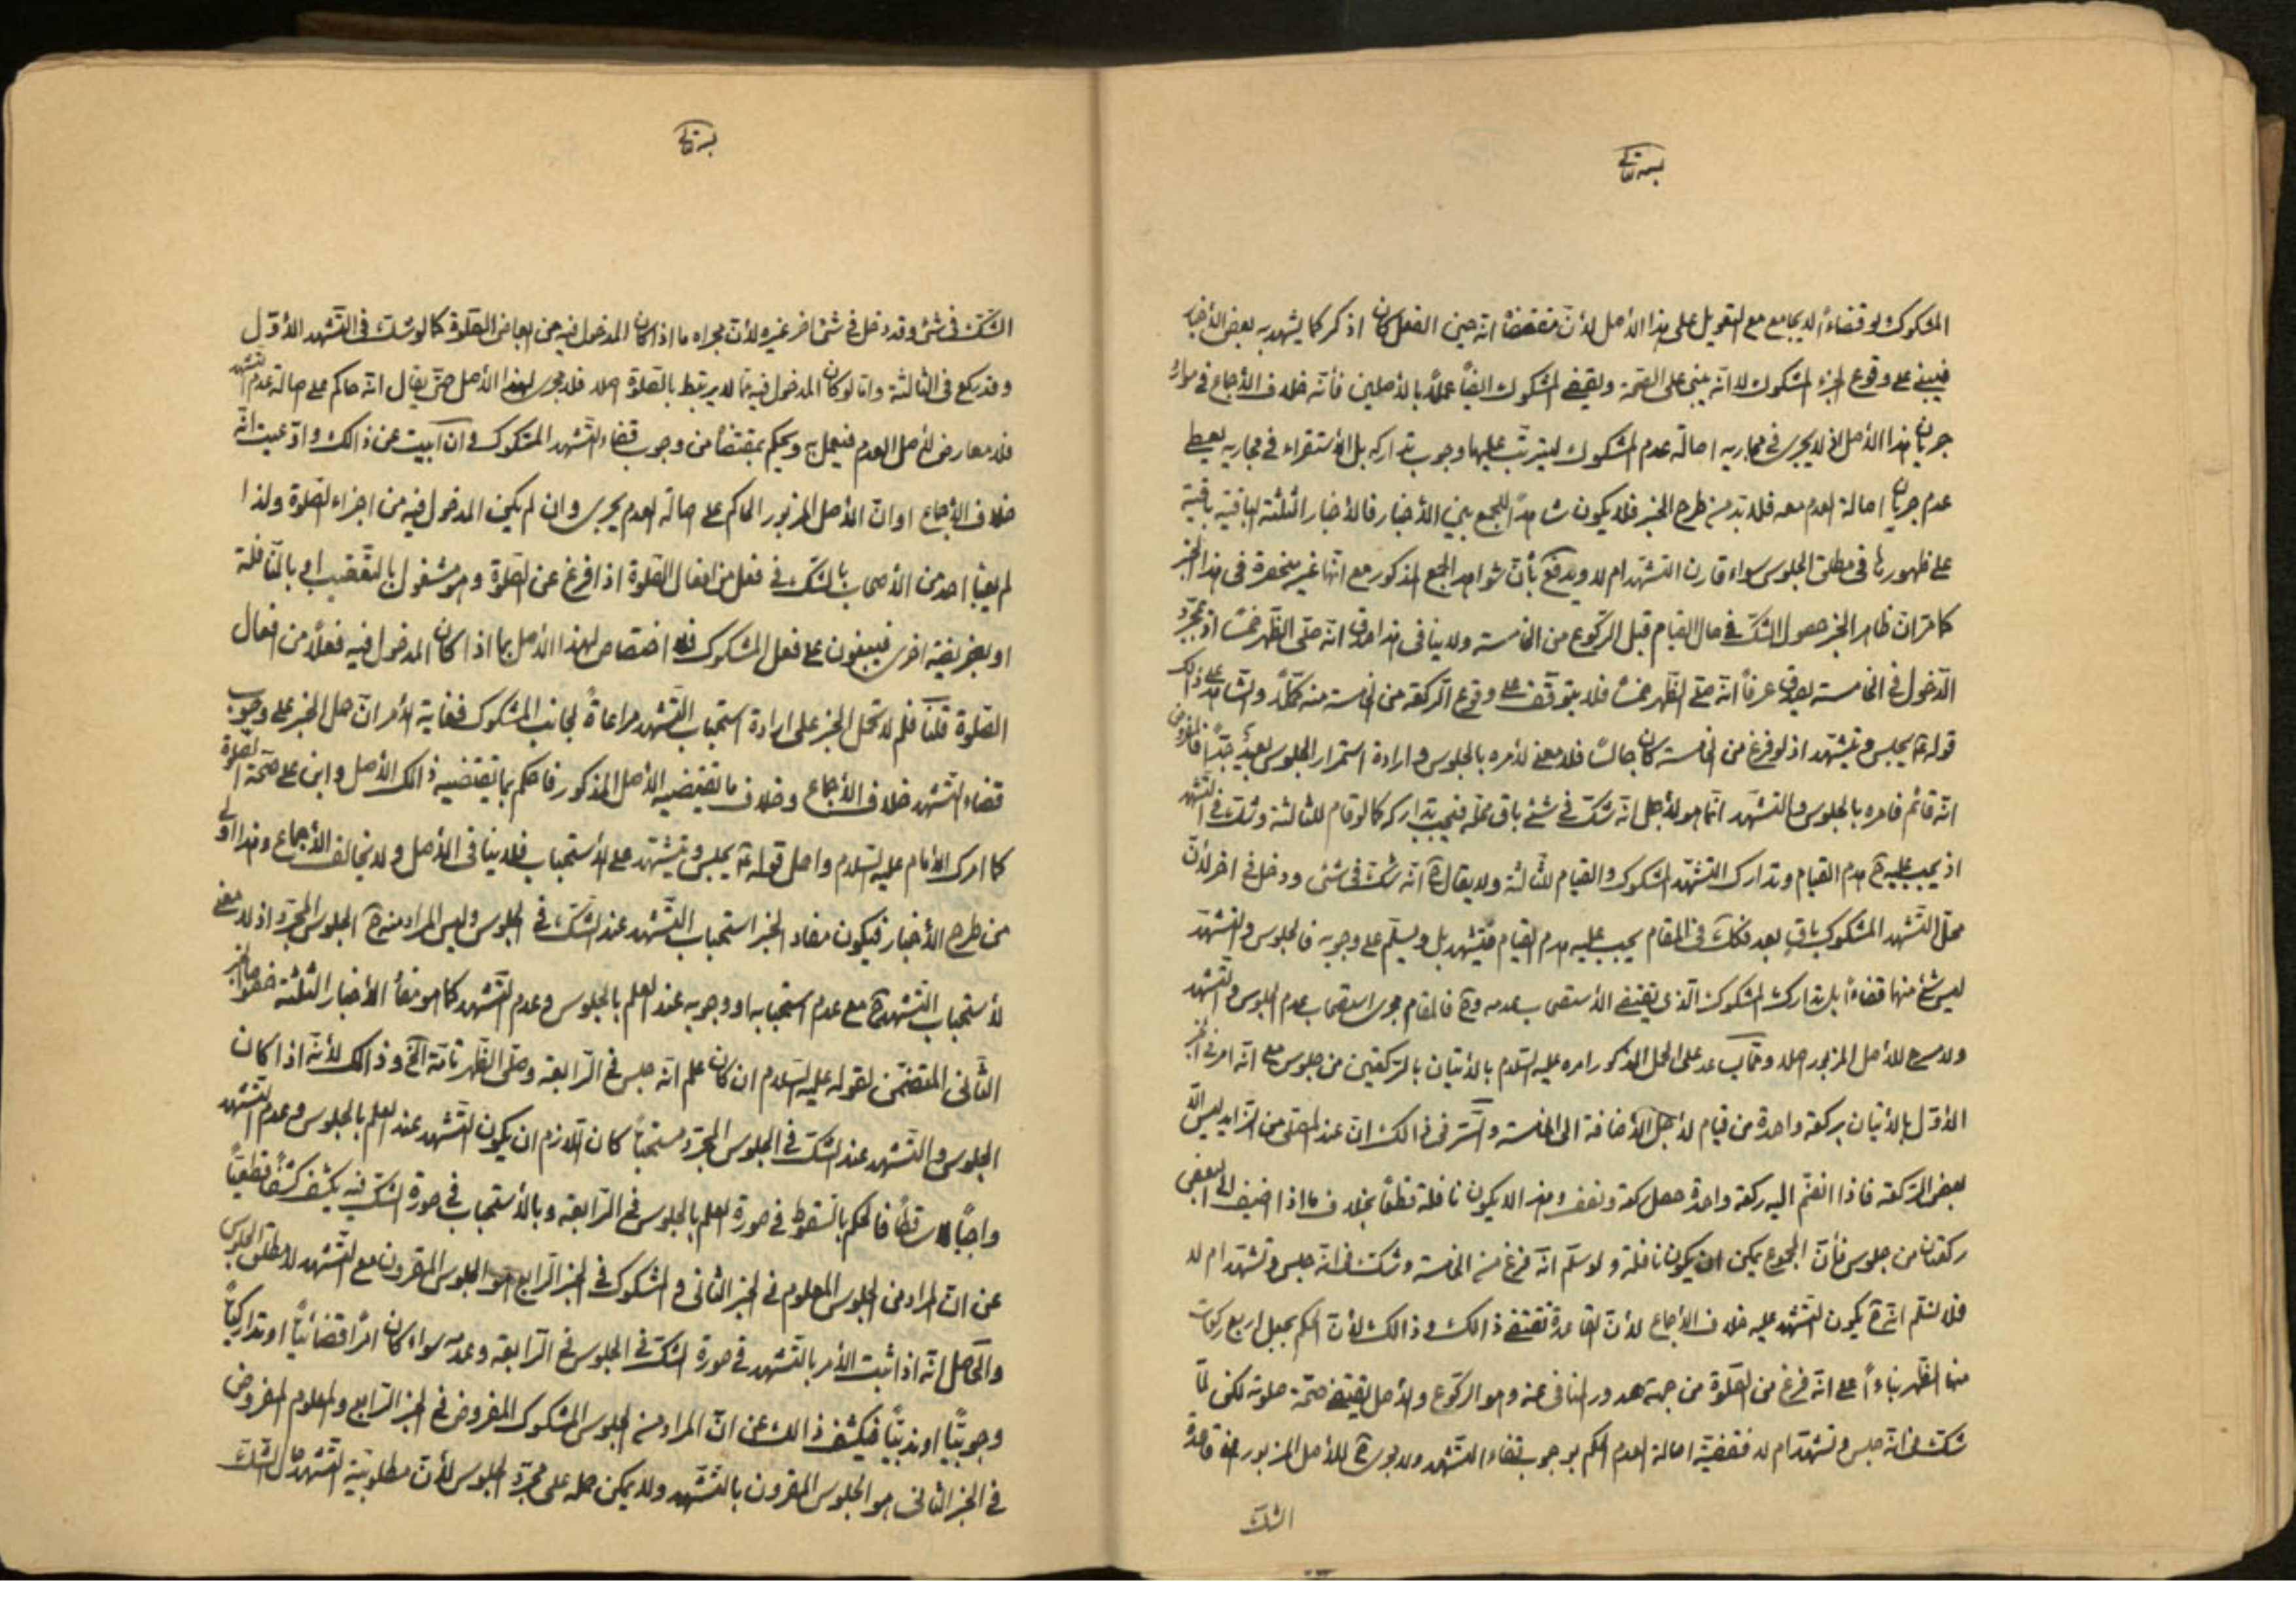 بسمه تعالى
المشكوك لو قضاءً لا يجامع مع التعويل على هذا الأصل لأن مقتضاه انه حين الفعل كان اذكر كما يشهد به بعض الأخبار
فيبنى على وقوع الجزء المشكوك لا انه يبنى على الصحة ويقضى المشكوك ايضاً عملاً بالأصلين فأنه خلاف الأجماع فى موارد
جريان هذا الأصل اذ لا يجرى فى مجاريه اصالة عدم المشكوك ليترتب عليها وجوب تداركه بل الأستقراء فى مجاريه يعطى
عدم جريان اصالة العدم معه فلا بد من طرح الخبر فلا يكون شاهداً للجمع بين الأخبار فالأخبار الثلثة الباقية باقية
على ظهورها فى مطلق الجلوس سواء قارن التشهد ام لا ويدفع بأن شواهد الجمع المذكور مع انها غير منحصرة فى هذا الخبر
كما مر ان ظاهر الخبر حصول الشك فى حال القيام قبل الركوع من الخامسة ولا ينافى هذا صدق انه صلى الظهر خمساً اذ بمجرد
الدخول فى الخامسة يصدق عرفاً انه صلى الظهر خمساً فلا يتوقف على وقوع الركعة من الخامسة منه مكملاً والشاهد على ذلك
قوله ع يجلس ويتشهد اذ لو فرغ من الخامسة كان جالساً فلا معنى لأمره بالجلوس و ارادة استمرار الجلوس بعيد جداً فالمفروض
انه قائم فامره بالجلوس والتشهد انما هو لأجل انه شك فى شئ باق محله فيجب تداركه كما لو قام للثالثة وشك فى التشهد
اذ يجب عليه ح هدم القيام وتدارك التشهد المشكوك والقيام للثالثة ولا يقال ح انه شك فى شئ ودخل فى اخر لأن
محل التشهد المشكوك باقٍ بعد فكك فى المقام يجب عليه هدم القيام فيتشهد بل ويسلم على وجوبه فالجلوس والتشهد
ليس شئ منهما قضاءً بل تدارك المشكوك الذى يقتضى الأستصحاب عدمه وح فالمقام مجرى استصحاب عدم الجلوس والتشهد
ولا مسرح للأصل المزبور اصلا ومما يساعد على الحمل المذكور امره عليه السلام بالأتيان بالركعتين من جلوس مع انه امر فى الخبر
الأول بالأتيان بركعة واحدة من قيام لأجل الأضافة الى الخامسة والسر فى ذالك ان عند المصلى من الزايد ليس الا
بعض الركعة فاذا انضم اليه ركعة واحدة حصل ركعة ونصف و هذا لا يكون نافلة قطعاً بخلاف ما اذا اضيف الى البعض
ركعتان من جلوس فأن المجموع يمكن ان يكون نافلة و لو سلم انه فرغ من الخامسة وشك فى انه جلس وتشهد ام لا
فلا نسلم انه ح يكون التشهد عليه خلاف الأجماع لأن القاعدة تقتضى ذالك و ذالك لأن الحكم بجعل اربع ركعات
منها الظهر بناءاً على انه فرغ من الصلوة من جهة صدور المنافى عنه وهو الركوع والأصل يقتضى صحة صلوته لكن لما
شك فى انه جلس وتشهد ام لا فقضية اصالة العدم الحكم بوجوب قضاء التشهد ولا مجرى ح للأصل المزبور اعنى قاعدة
الشك
بسمه تعالى
الشك فى شئ وقد دخل فى شئ اخر غيره لأن مجراه ما اذا كان المدخول فيه من ابعاض الصلوة كما لو شك فى التشهد الأول
وقد ركع فى الثالثة واما لو كان المدخول فيه مما لا يرتبط بالصلوة اصلا فلا مجرى لهذا الأصل حتى يقال انه حاكم على اصالة عدم التشهد
فلا معارض لأصل العدم فيعمل به ويحكم بمقتضاه من وجوب قضاء التشهد المشكوك و ان ابيت عن ذالك و ادعيت انه
خلاف الأجماع او ان الأصل المزبور الحاكم على اصالة العدم يجرى وان لم يكن المدخول فيه من اجزاء الصلوة ولذا
لم يعبأ احد من الأصحاب بالشك فى فعل من افعال الصلوة اذا فرغ عن الصلوة وهو مشغول بالتعقيب او بالنافلة
او بفريضة اخرى فيبنون على فعل المشكوك فلا اختصاص لهذا الأصل بما اذا كان المدخول فيه فعلاً من افعال
الصلوة قلنا فلم لا تحمل الخبر على ارادة استحباب التشهد مراعاةً لجانب المشكوك فغاية الأمر ان حمل الخبر على وجوب
قضاء التشهد خلاف الأجماع وخلاف ما يقتضيه الأصل المذكور فاحكم بما يقتضيه ذالك الأصل و ابن على صحة الصلوة
كما امرك الأمام عليه السلام واحمل قوله ع يجلس ويتشهد على الأستحباب فلا ينافى الأصل ولا يخالف الأجماع و هذا اولى
من طرح الأخبار فيكون مفاد الخبر استحباب التشهد عند الشك فى الجلوس وليس المراد منه ح الجلوس المجرد اذ لا معنى
لأستحباب التشهد ح مع عدم استحبابه او وجوبه عند العلم بالجلوس وعدم التشهد كما هو مفاد الأخبار الثلثة خصوصاً الخبر
الثانى المتضمن لقوله عليه السلام ان كان علم انه جلس فى الرابعة وصلى الظهر تامة الخ و ذالك لأنه اذا كان
الجلوس و التشهد عند الشك فى الجلوس المجرد مستحباً كان اللازم ان يكون التشهد عند العلم بالجلوس وعدم التشهد
واجباً قطعاً فالحكم بالسقوط فى صورة العلم بالجلوس فى الرابعة و بالأستحباب فى صورة الشك فيه يكشف كشفاً قطعياً
عن ان المراد من الجلوس المعلوم فى الخبر الثانى و المشكوك فى الخبر الرابع هو الجلوس المقرون مع التشهد لا مطلق الجلوس
والحاصل انه اذا ثبت الأمر بالتشهد فى صورة الشك فى الجلوس فى الرابعة وعدمه سواء كان امراً قضائياً او تداركياً
وجوبياً او ندبياً فيكشف ذالك عن ان المراد من الجلوس المشكوك المفروض فى الخبر الرابع والمعلوم المفروض
فى الخبر الثانى هو الجلوس المقرون بالتشهد ولا يمكن حمله على مجرد الجلوس لأن مطلوبية التشهد حال الشك